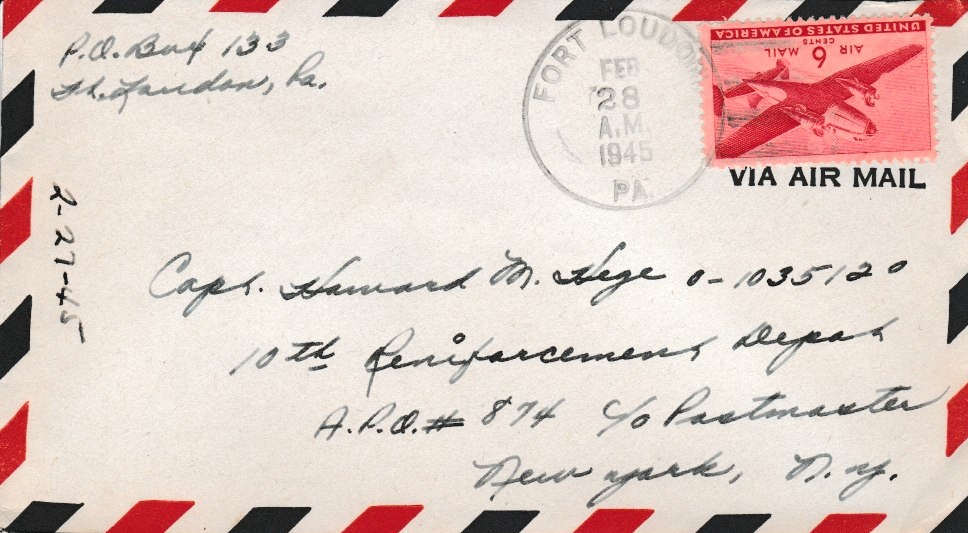 P.O. Box 133
Ft. Loudon, Pa.
FORT LOUDON
FEB
28
A.M.
1945
PA.
UNITED STATES OF AMERICA
AIR MAIL
6 CENTS
VIA AIR MAIL
2-27-45
Capt. Howard M. Hege 0-1035120
10th Reniforcement Depot
A.P.O.# 874 c/o Postmaster
New York, N.Y.